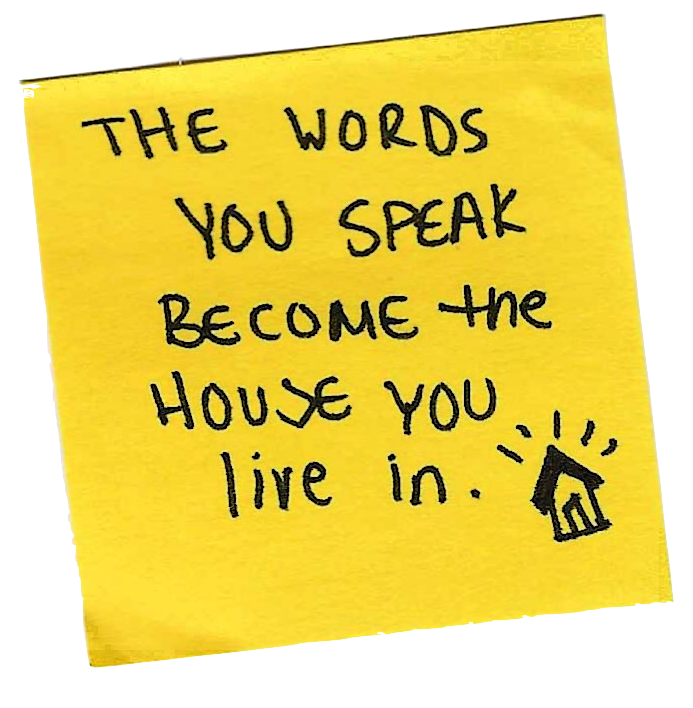 THE WORDS
YOU SPEAK
BECOME the
HOUSE YOU
live in.